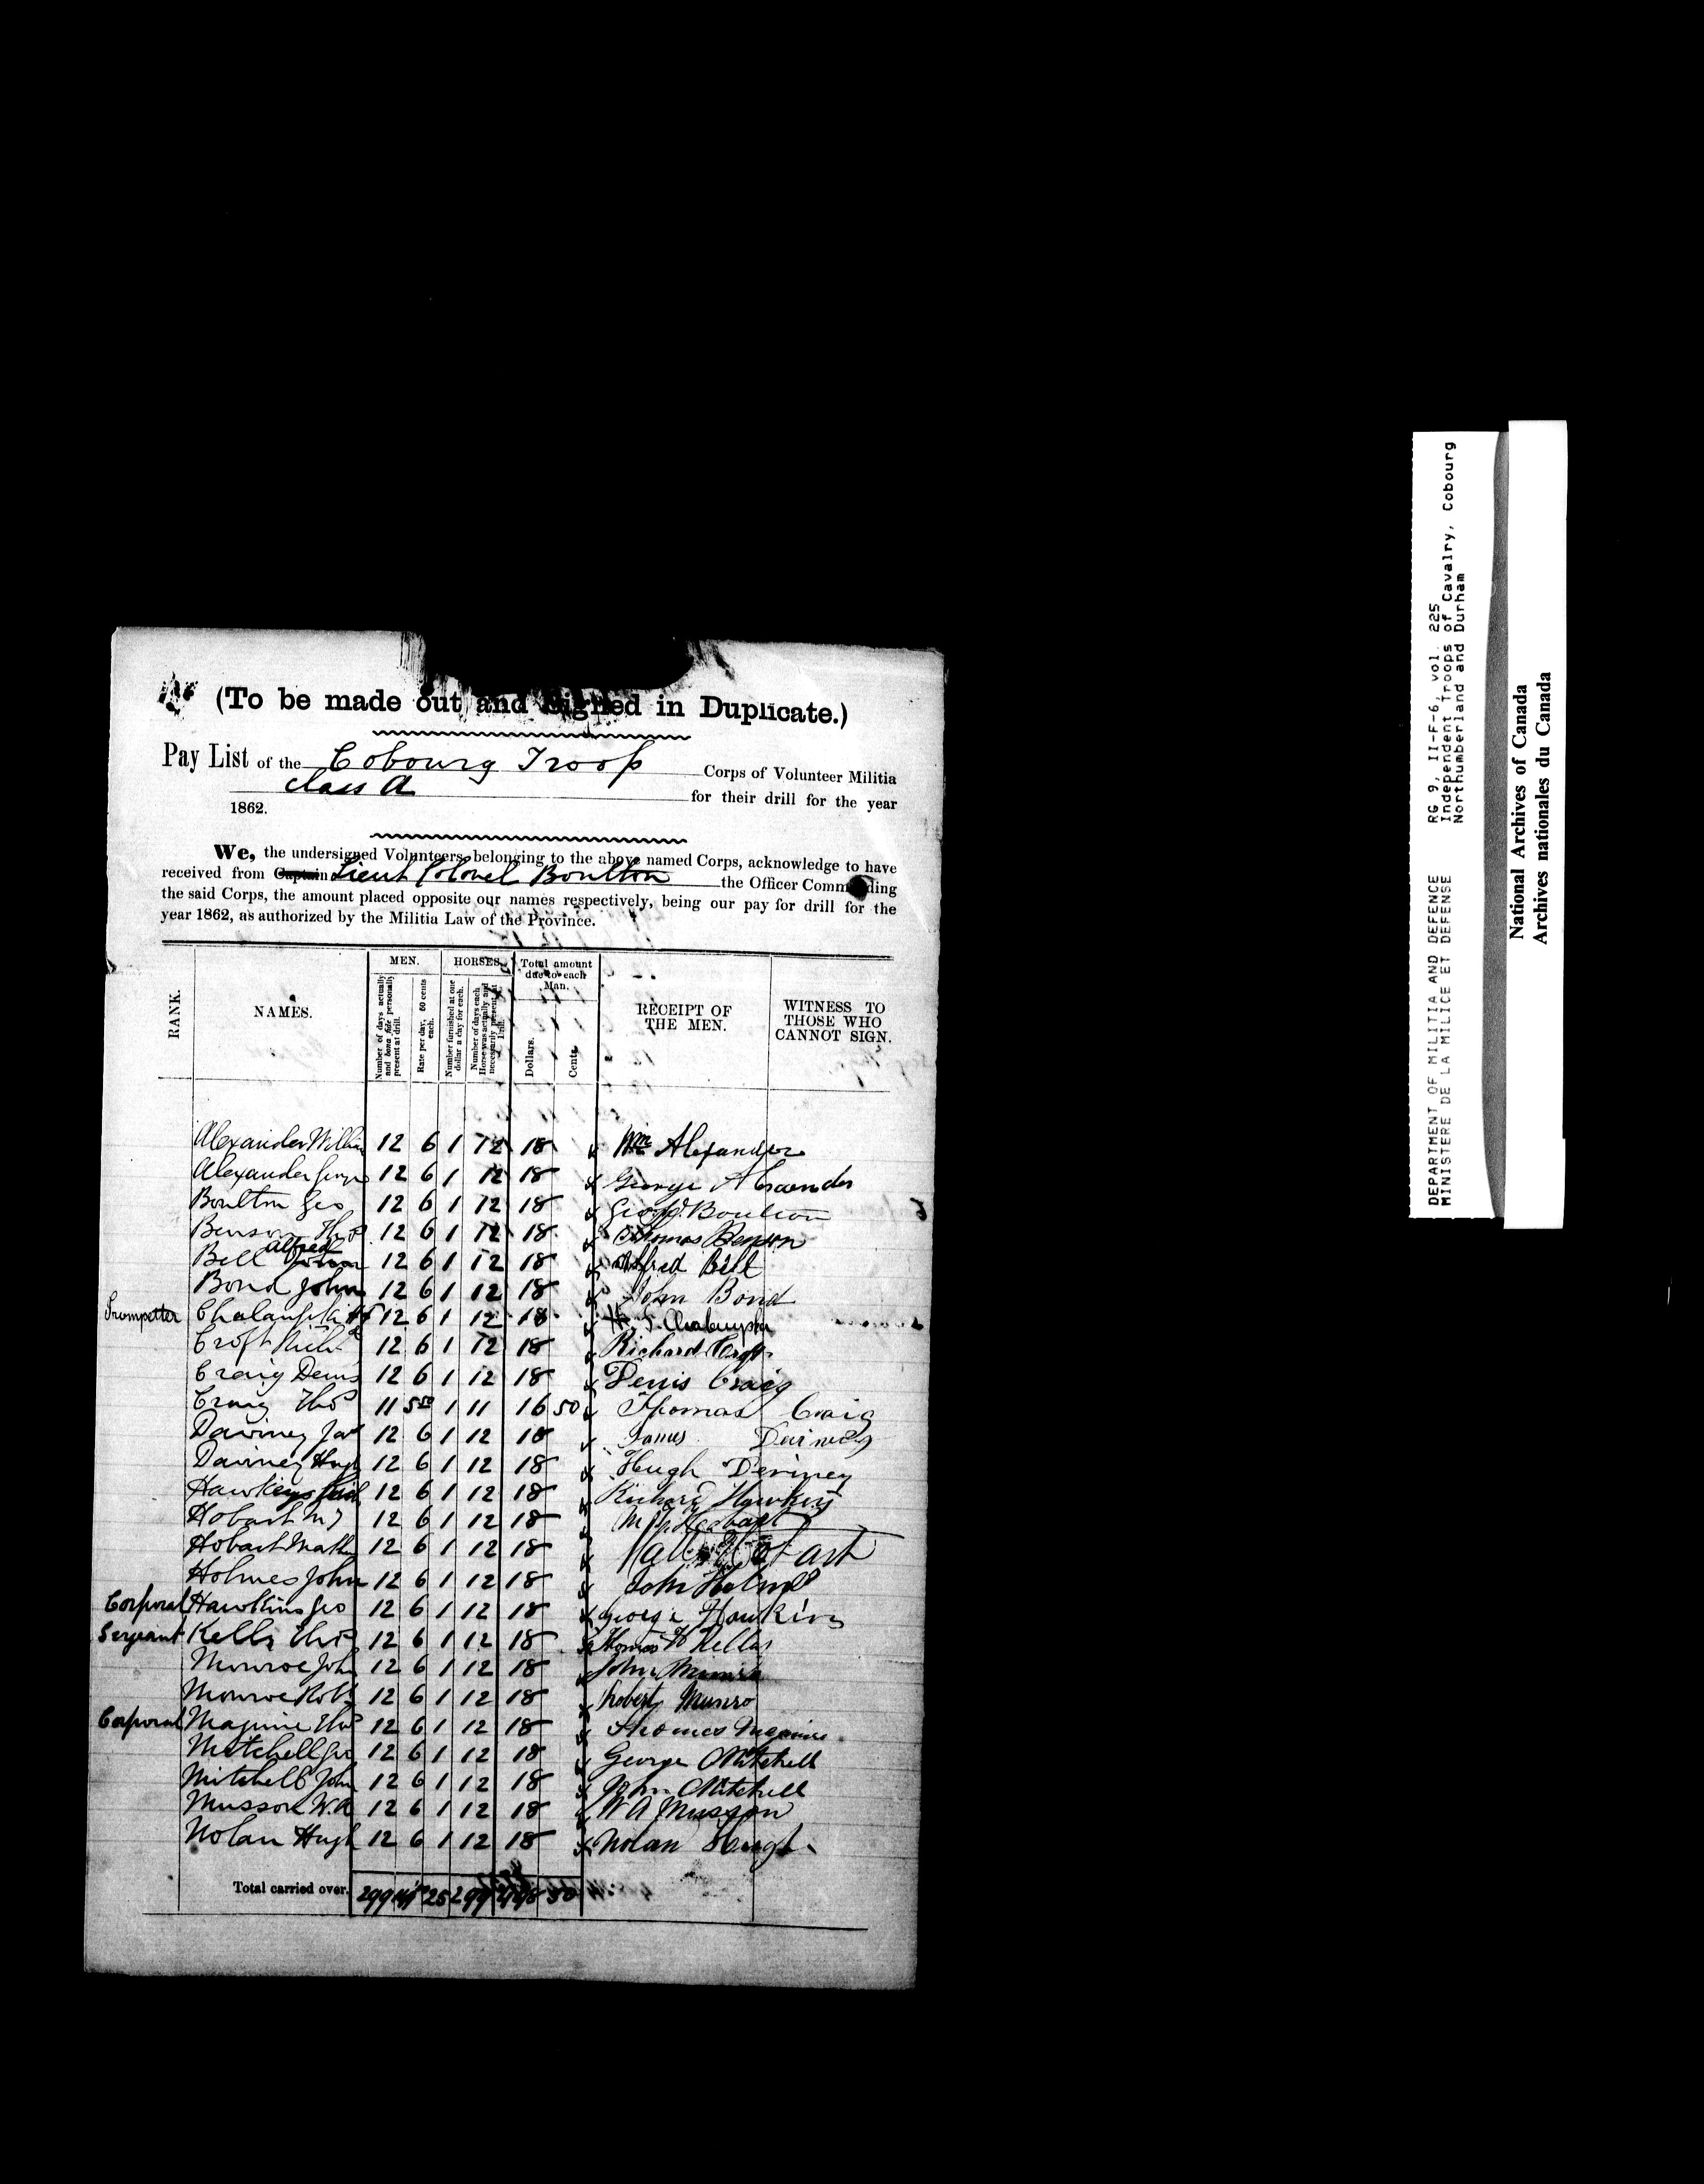 (To be made out and Signed in Duplicate.)
Pay List of the Cobourg Troop Corps of Volunteer Militia
class A for their drill for the year
1862.
We, the undersigned Volunteers, belonging to the above named Corps, acknowledge to have
received from Captain Lieut Colonel Boulton the Officer Commanding
the said Corps, the amount placed opposite our names respectively, being our pay for drill for the
year 1862, as authorized by the Militia Law of the Province.
RANK. NAMES. MEN. HORSES. Total amount due to each Man. RECEIPT OF THE MEN. WITNESS TO THOSE WHO CANNOT SIGN.
Number of days actually and bona fide personally present at drill. Rate per day, 50 cents each. Number furnished at one dollar a day for each. Number of days each Horse was actually and necessarily present at Drill. Dollars. Cents.
Alexander William 12 6 1 12 18 Wm Alexander
Alexander George 12 6 1 12 18 George
Boulton Geo 12 6 1 12 18 Boulton
Benson Thos 12 6 1 12 18 Thomas Benson
Bell Alfred 12 6 1 12 18 Alfred Bell
Bond John 12 6 1 12 18 John Bond
Trumpeter 12 6 1 12 18 H.
Croft Richd 12 6 1 12 18 Richard Croft
Craig Denis 12 6 1 12 18 Denis Craig
Craig Thos 11 5 50 1 11 16 50 Thomas Craig
Daviney Jas 12 6 1 12 18 James
Daviney Hugh 12 6 1 12 18 Hugh Deviney
Hawkins 12 6 1 12 18 Richard Hawkins
Hobart 12 6 1 12 18 Hobart
Hobart 12 6 1 12 18 Hobart
Holmes John 12 6 1 12 18 John Holmes
Corporal Hawkins Geo 12 6 1 12 18 George Hawkins
Sergeant Kells Thos 12 6 1 12 18 Thomas Kells
Monroe John 12 6 1 12 18 John Munro
Monroe Robt 12 6 1 12 18 Robert Munro
Corporal Maguire Thos 12 6 1 12 18 Thomas
Mitchell Geo 12 6 1 12 18 George Mitchell
Mitchell John 12 6 1 12 18 John Mitchell
Musson W.A 12 6 1 12 18 W A Musson
Nolan Hugh 12 6 1 12 18 Nolan Hugh
Total carried over. 299 25 299 50
DEPARTMENT OF MILITIA AND DEFENCE RG 9, II-F-6, vol. 225
MINISTERE DE LA MILICE ET DEFENSE Independent Troops of Cavalry, Cobourg
Northumberland and Durham
National Archives of Canada
Archives nationales du Canada